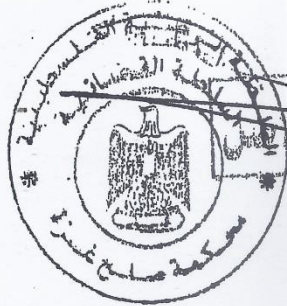 السلطة الوطنية الفلسطينية
السلطة القضائية
محكمة صلح غزة